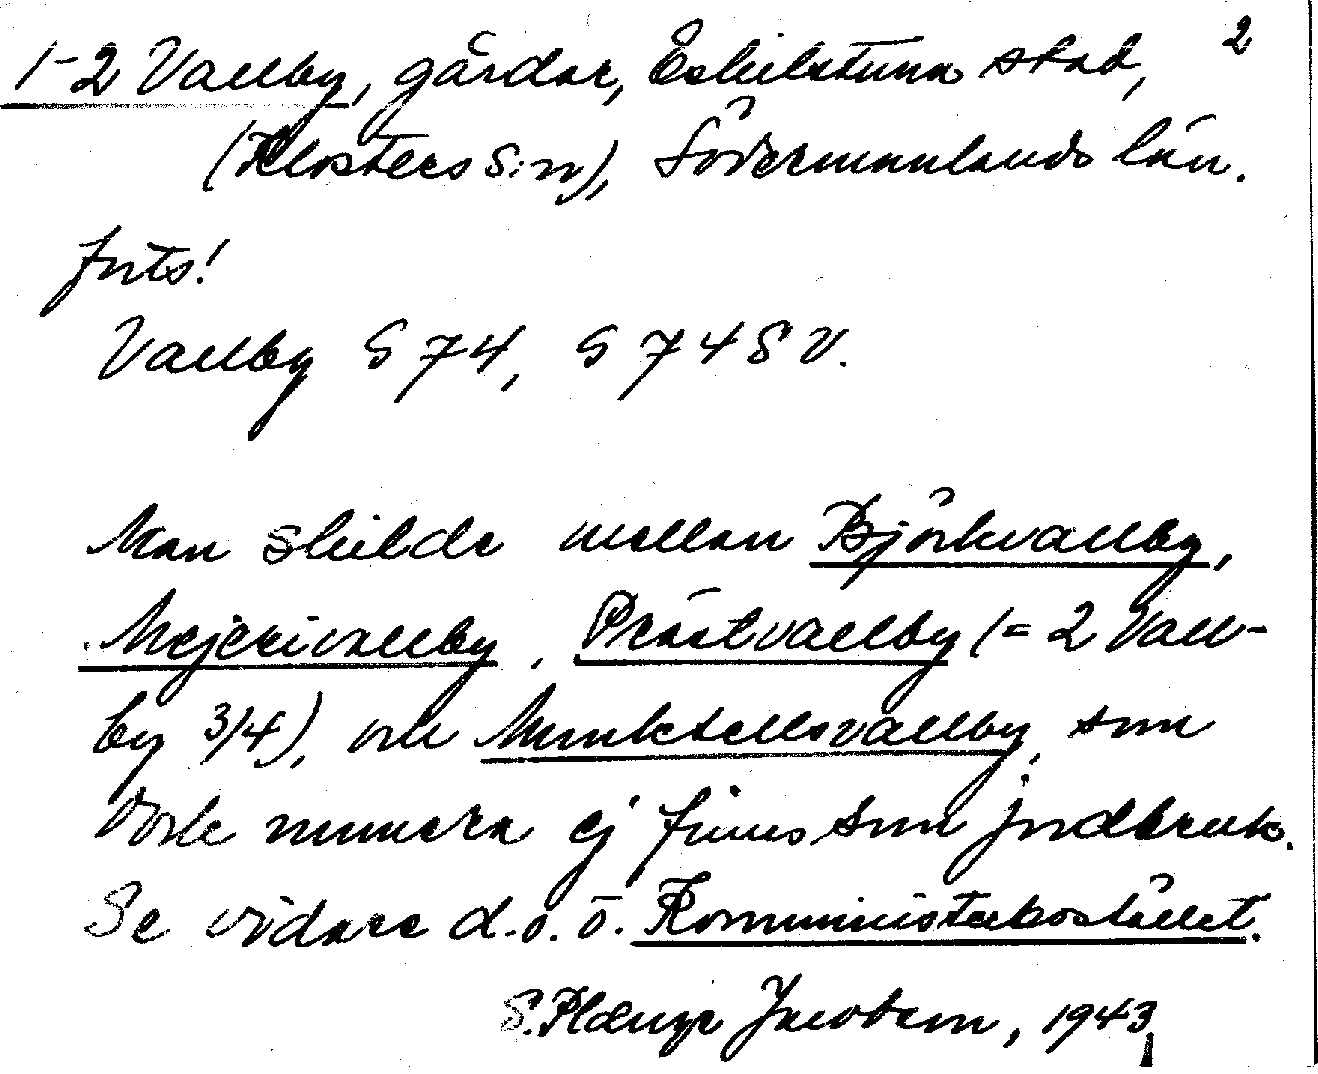 2
1-2 Vallby, gårdar, Eskilstuna stad,
(Klosters s:n), Södermanlands län.
forts!
Vallby S 74, S 74 SV.
Man skilde mellan Björkvallby,
Mejerivallby, Prästvallby (= 2 Vall-
by 3/4), och Munktellsvallby, som
dock numera ej finns som jordbruk.
Se vidare d.o. o. Komministerbostället.
Jacobson, 1943